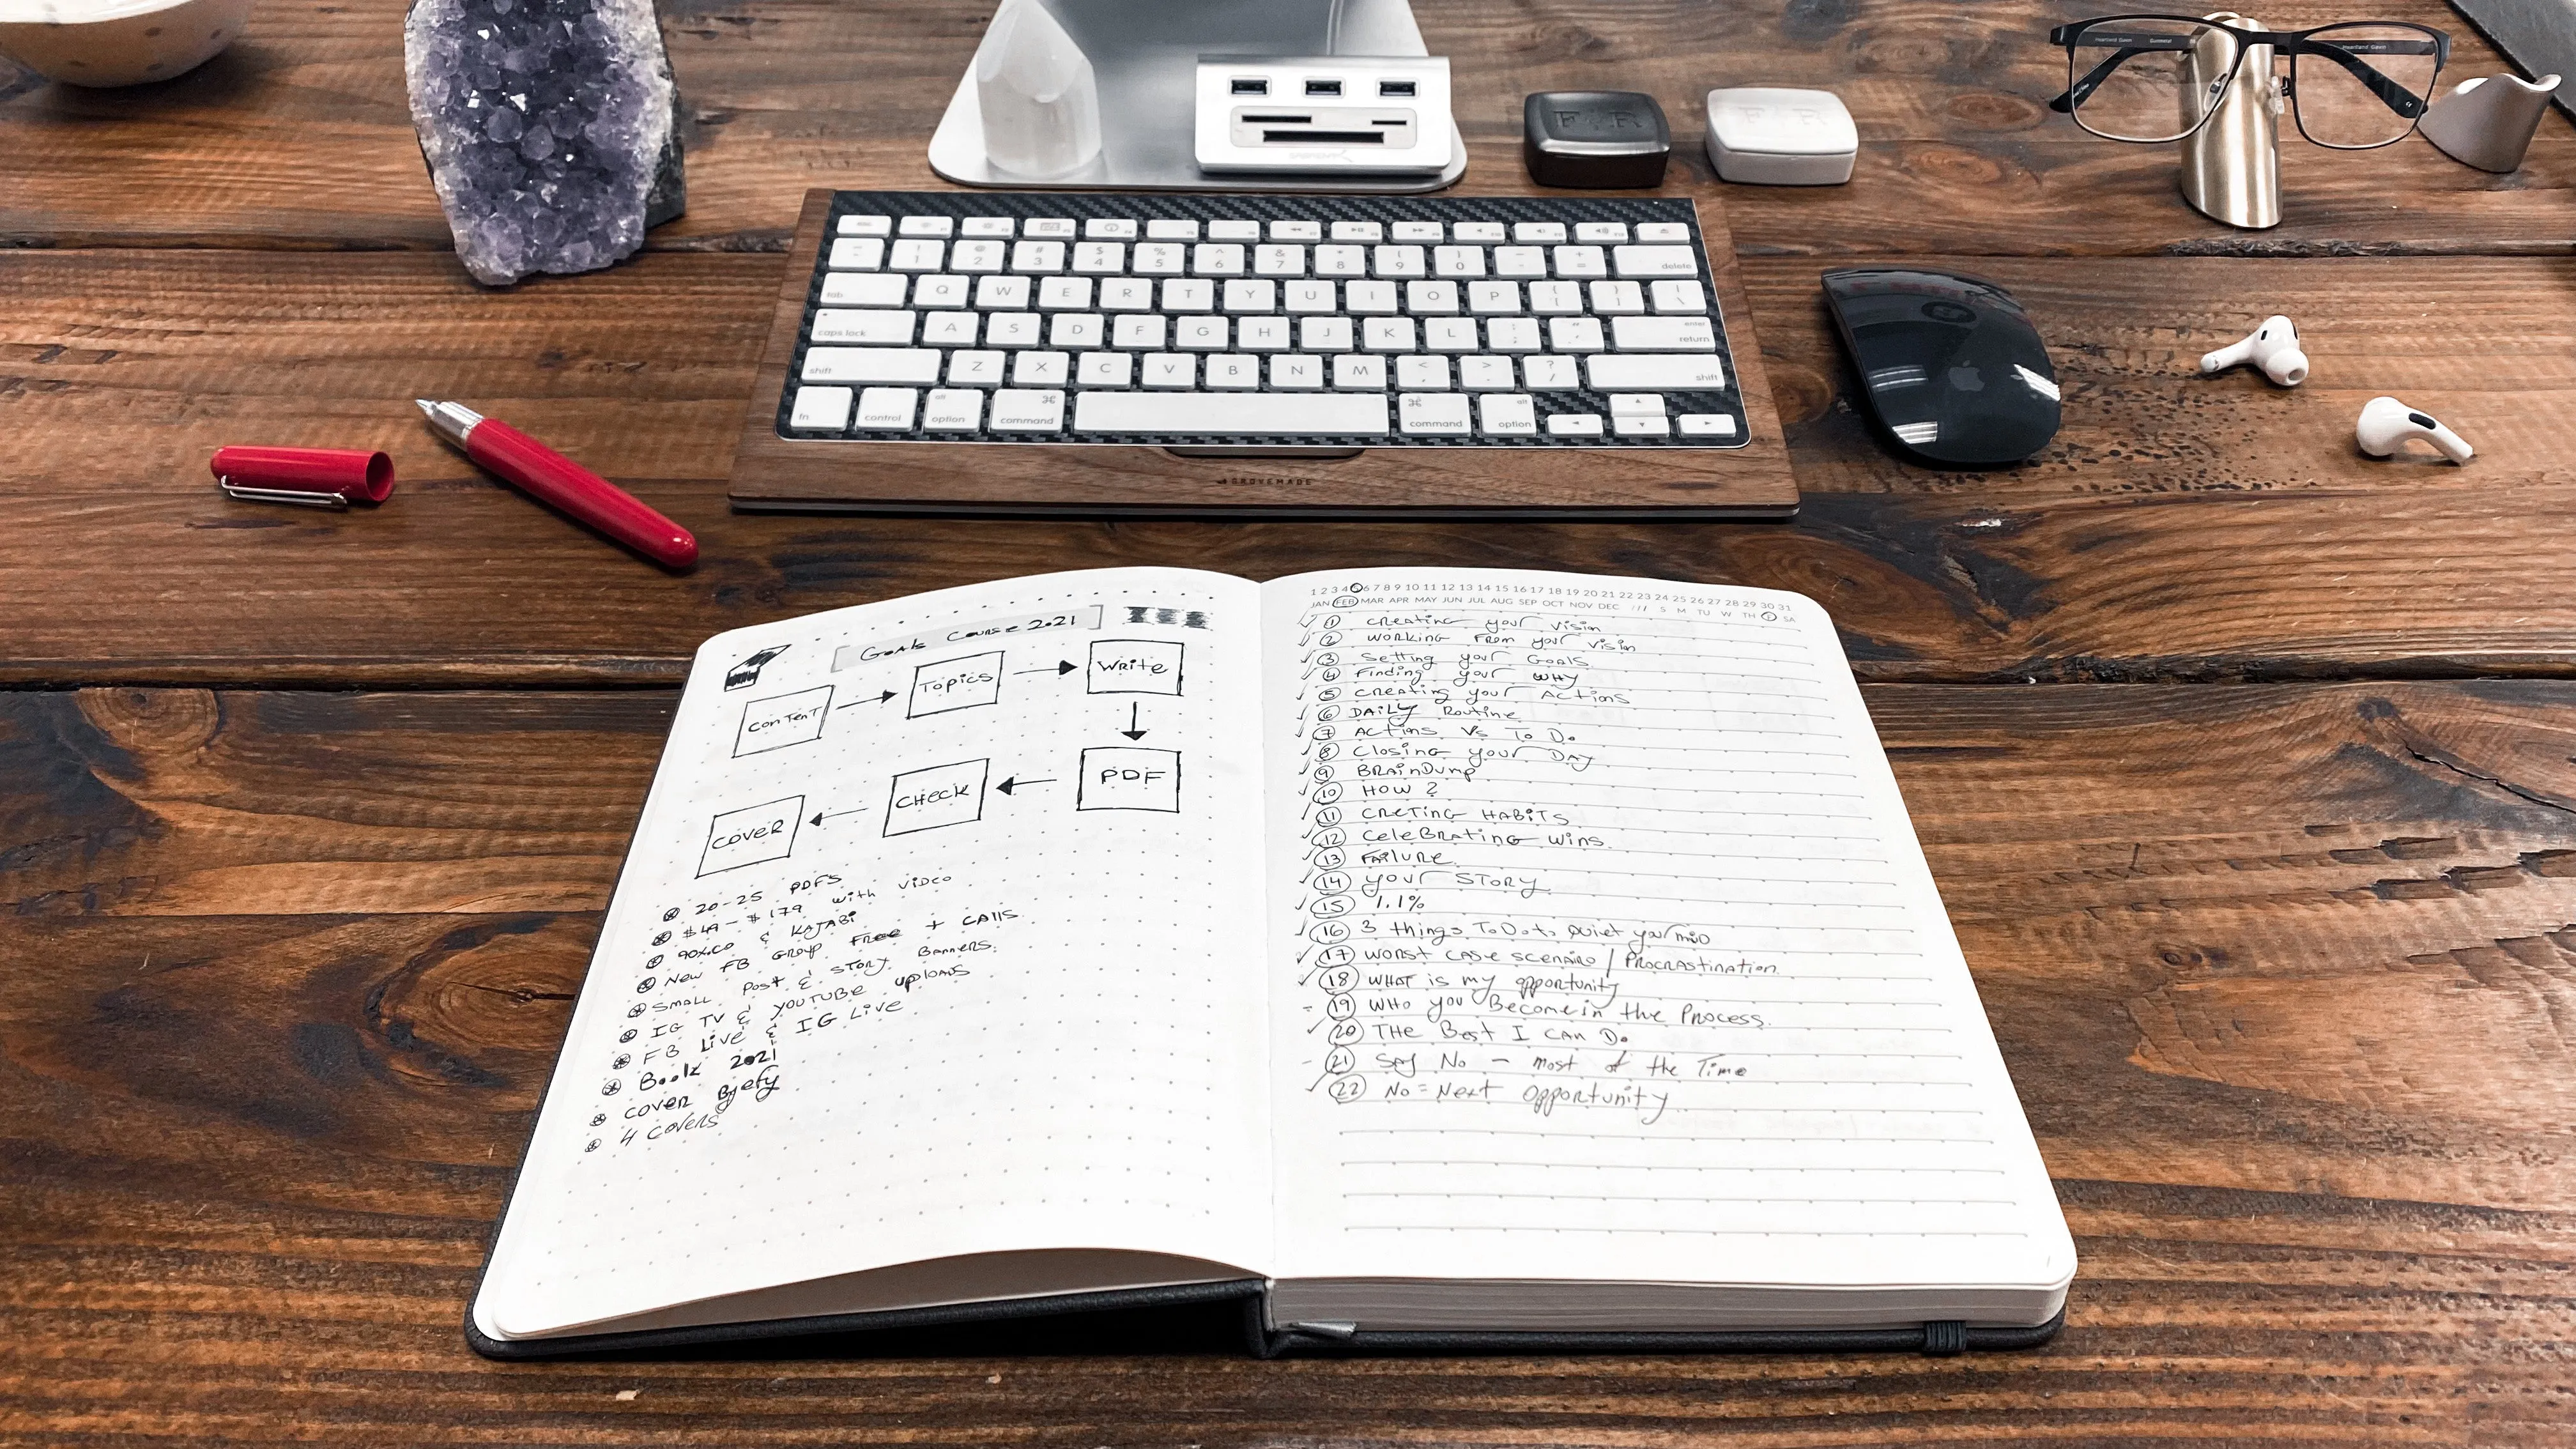 Heartland Gwen
Gunmetal
Heartland Gwen
F R
F R
~ ! @ # $ % ^ & * ( ) _ +
` 1 2 3 4 5 6 7 8 9 0 - = delete
tab Q W E R T Y U I O P { [ } ] | \
caps lock A S D F G H J K L : ; " ' enter return
shift Z X C V B N M < , > . ? / shift
fn control alt option ⌘ command ⌘ command alt option
GROVEMADE
Goals Course 2021
conTenT
Topics
Write
PDF
CHecK
COVeR
20-25 PDFS
$49 - $179 with video
90X.CO & KAJABi
New FB Group Free + CAlls
SMALL Post & STORY Banners.
IG TV & YOUTUBE uploads
FB Live & IG Live
Book 2021
COVER Bjefy
4 covers
1 2 3 4 6 7 8 9 10 11 12 13 14 15 16 17 18 19 20 21 22 23 24 25 26 27 28 29 30 31
JAN FEB MAR APR MAY JUN JUL AUG SEP OCT NOV DEC /// S M TU W TH F SA
1 Creating your Vision
2 Working From your Vision
3 Setting your Goals
4 Finding your WHY
5 Creating your Actions
6 DAiLy Routine
7 Actions Vs To Do
8 Closing your DAY
9 BRAinDump
10 HOW ?
11 CReTing HABiTS
12 CeleBRAting wins.
13 FAilURe.
14 your STORY
15 1.1%
16 3 things To Do to Quiet your miND
17 WORST CASe SCENAiRO / PROCRASTiNATiON.
18 WHAT is my opportunity
19 WHO you Become in the Process.
20 THe Best I CAN Do
21 SAY No - most of the Time
22 No = Next Opportunity